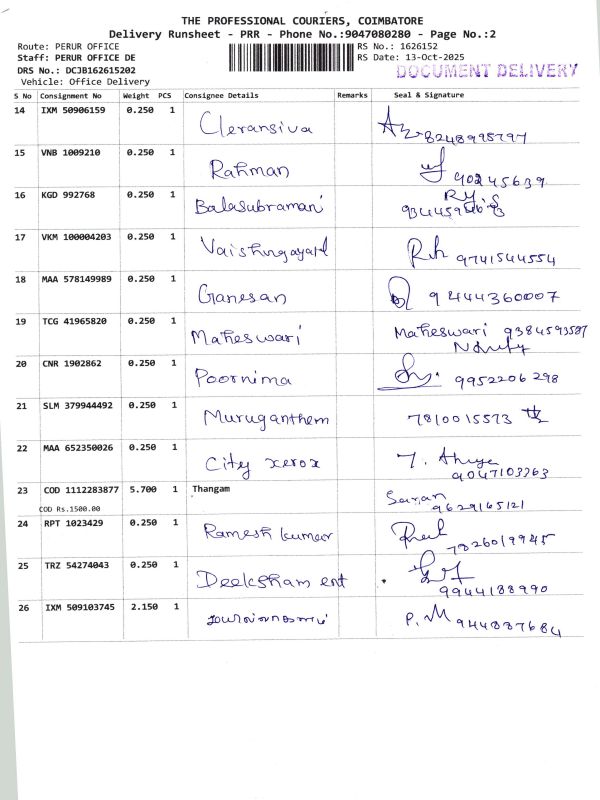 THE PROFESSIONAL COURIERS, COIMBATORE
Delivery Runsheet - PRR - Phone No.:9047080280 - Page No.:2
Route: PERUR OFFICE RS No.: 1626152
Staff: PERUR OFFICE DE RS Date: 13-Oct-2025
DRS No.: DCJB162615202 DOCUMENT DELIVERY
Vehicle: Office Delivery
S No Consignment No Weight PCS Consignee Details Remarks Seal & Signature
14 IXM 50906159 0.250 1 Cleransiva 8248995797
15 VNB 1009210 0.250 1 Rahman 90245639
16 KGD 992768 0.250 1 Balasubramani
17 VKM 100004203 0.250 1 9741544554
18 MAA 578149989 0.250 1 Ganesan 9444360007
19 TCG 41965820 0.250 1 Maheswari Maheswari 9384593587
20 CNR 1902862 0.250 1 Poornima 9952206298
21 SLM 379944492 0.250 1 Muruganthem 7810015573
22 MAA 652350026 0.250 1 City xerox 9047103263
23 COD 1112283877 5.700 1 Thangam Saran 9629165121
COD Rs.1500.00
24 RPT 1023429 0.250 1 Ramesh kumar 7826019945
25 TRZ 54274043 0.250 1 Deeksham ent 9944188990
26 IXM 509103745 2.150 1 P. M 944887684